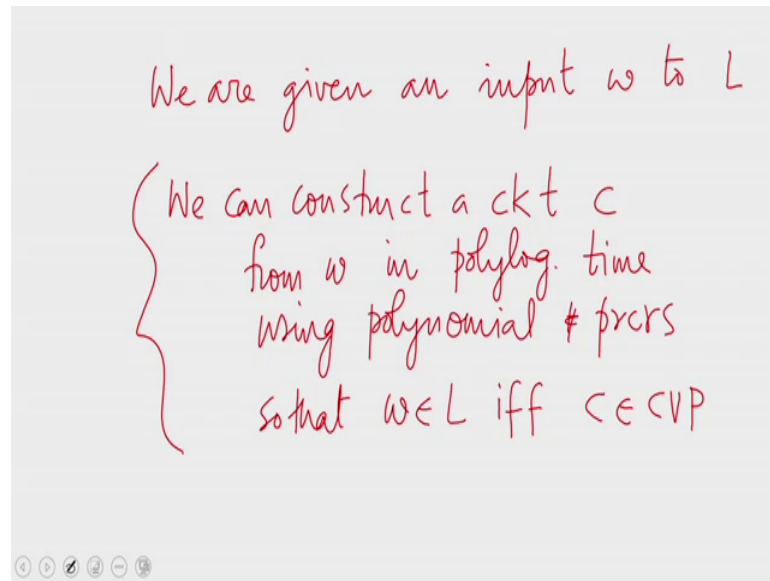 We are given an input w to L
We can construct a ckt C
from w in polylog. time
using polynomial # prcrs
so that w ∈ L iff C ∈ CVP